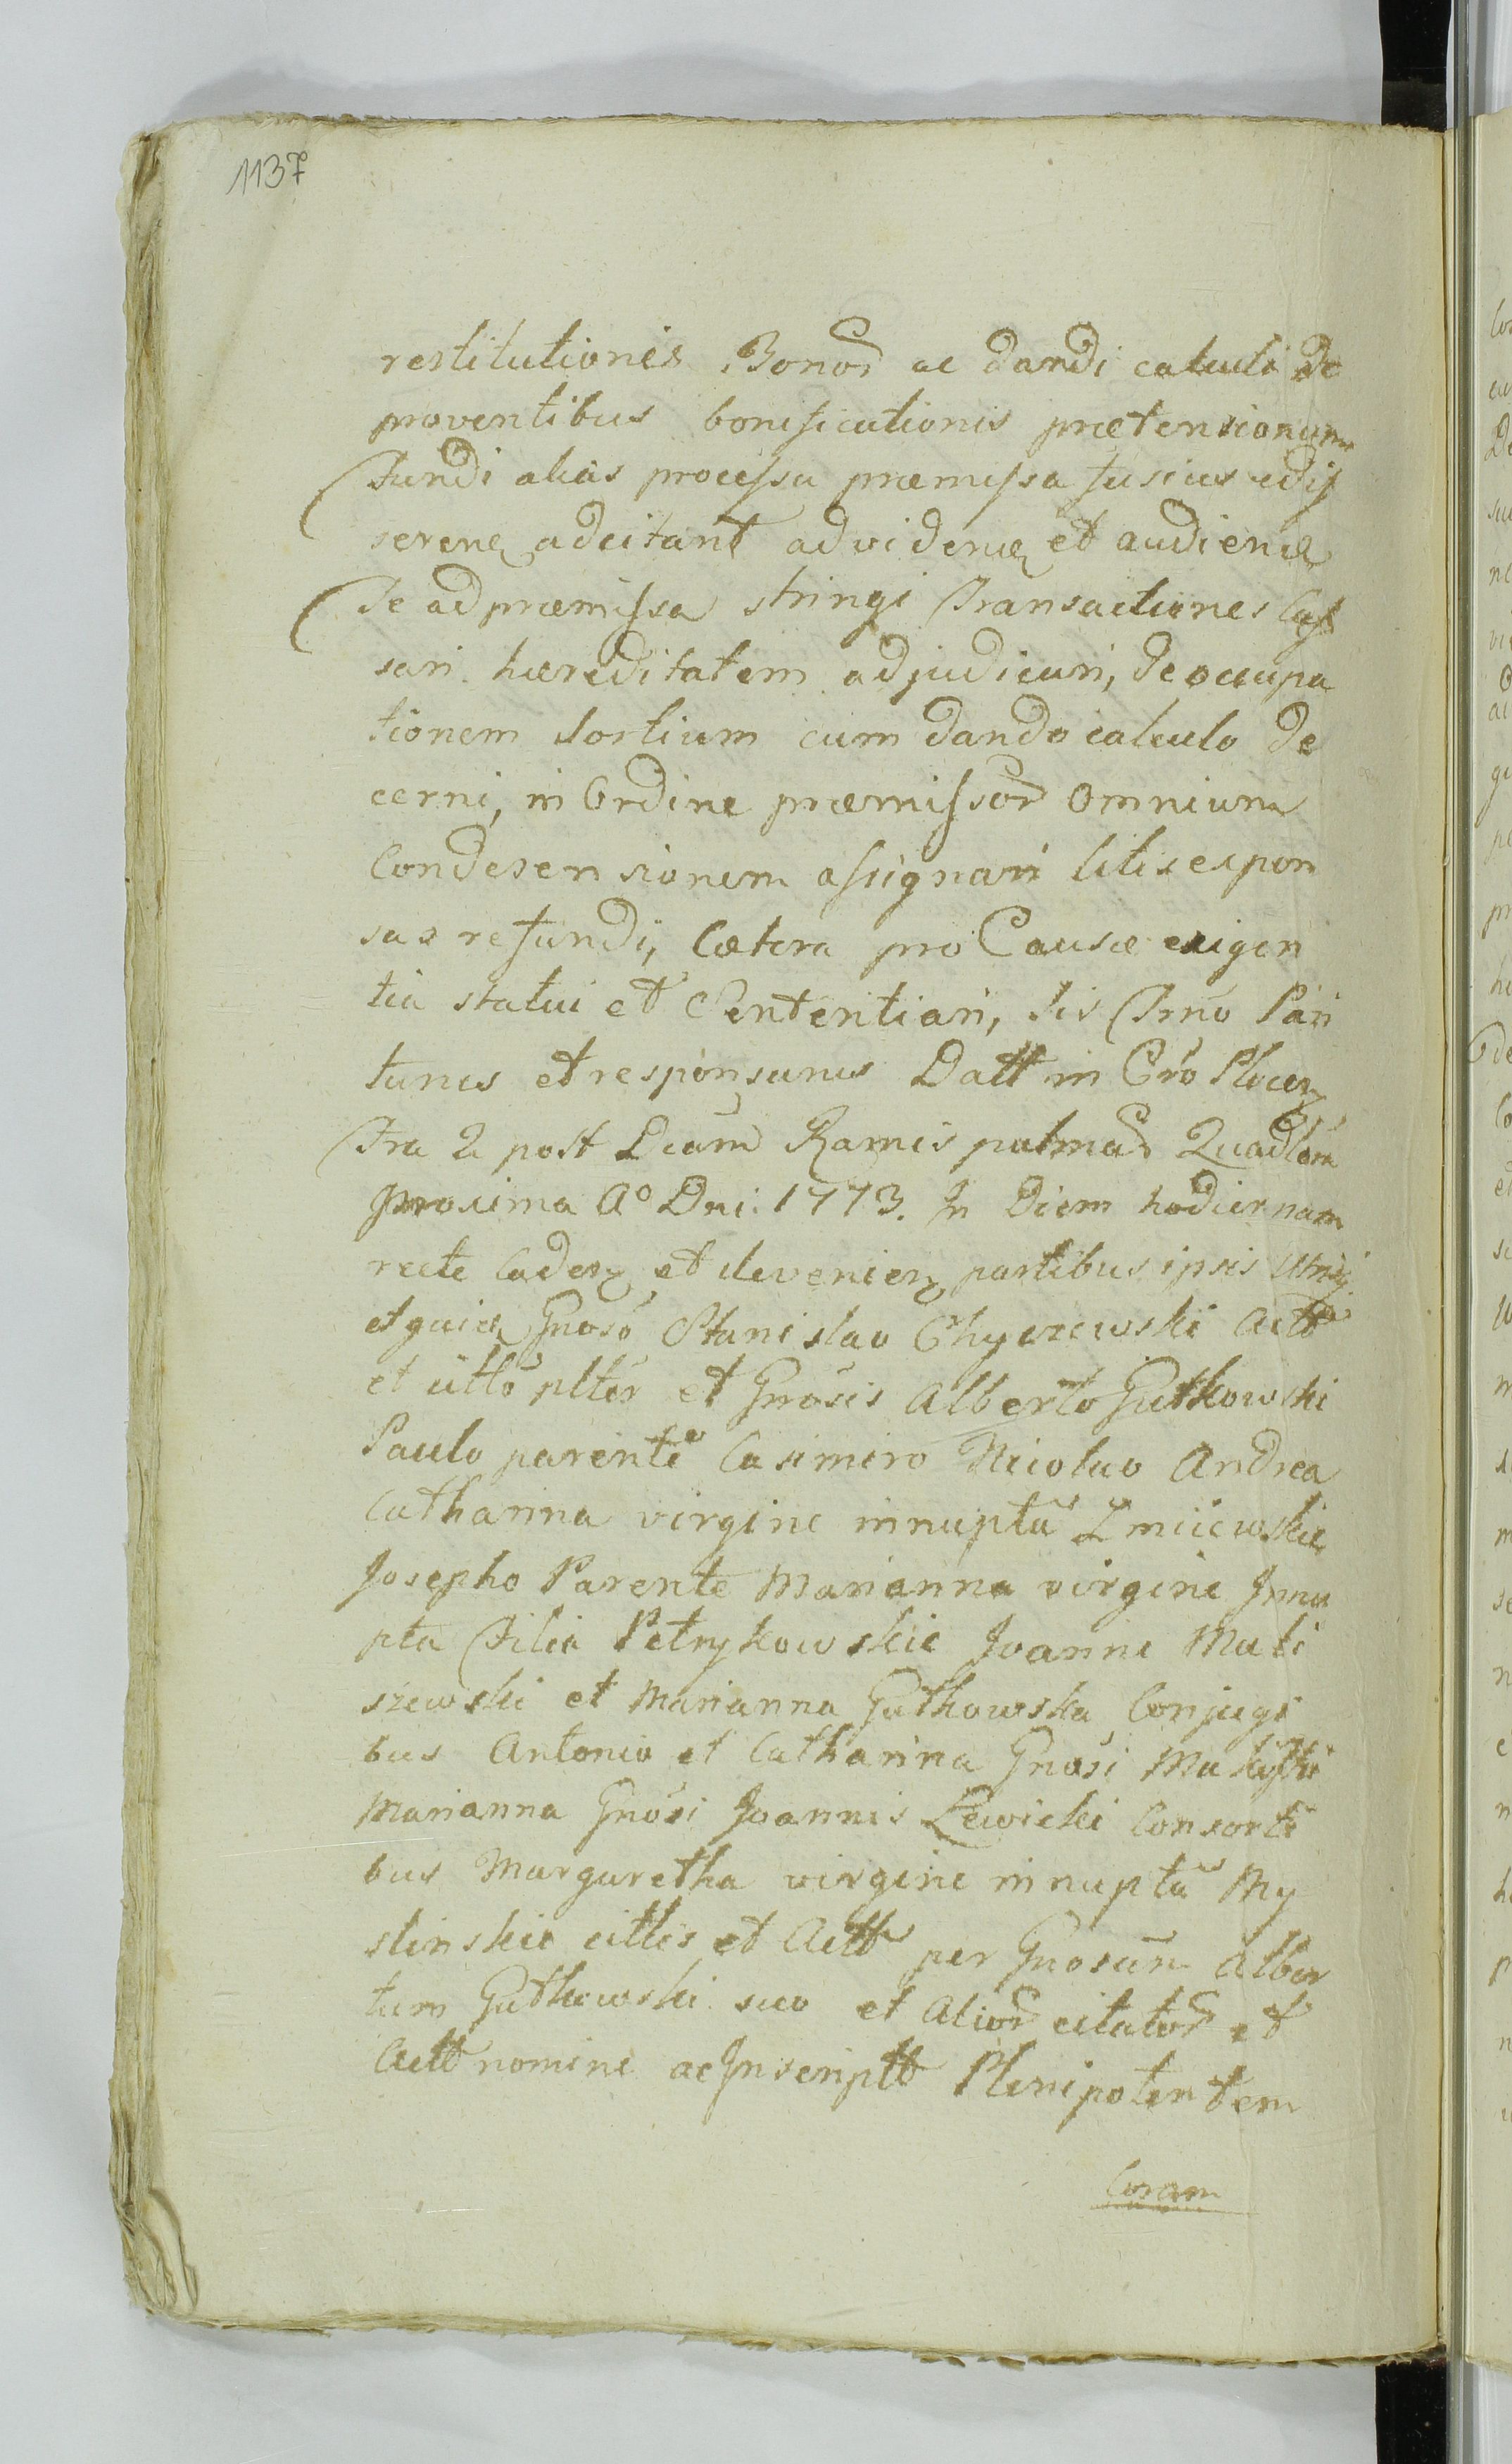 1137
restitutionis Bonor ac dandi calculi de
proventibus bonificationis praetensionum
Fundi alias processu praemissa fusius edis
seren adcitant ad viden et audien
Se ad praemissa stringi Transactiones Cas
sari haereditatem adjudicari, de occupa
tionem Sortium cum dando calculo de
cerni, in Ordine praemissor Omnium
Condescensionem assignari litis expen
sas refundi, Caetera pro Causae exigen
tia statui et Sententiari, sis Trno Pari
turus et responsurus Datt in Cro Plocen
Fra 2 post Dcam Ramis palmar Quadlem
proxima Ao Dni: 1773. In Diem hodiernam
recte Caden et devenien partibus ipsis utrisq
et quia Gnoso Stanislao Chyczewski Actt
et citto plter et Gnosis Alberto Gutkowski
Paulo parente Casimiro Nicolao Andrea
Catharina virgine innupta Zmiiewskie
Josepho Parente Marianna virgine Innu
pta Filia Petrykowskie Joanne Mali
szewski et Marianna Gutkowska Conjugi
bus Antonio et Catharina Gnosi
Marianna Gnosi Joannis Lewicki Consorti
bus Margaretha virgine innupta My
slinskie cittis et Actt per Gnosum Alber
tum Gutkowski suo et Alior citator et
Actt nomine ac Inscriptt Plenipotentem
Coram